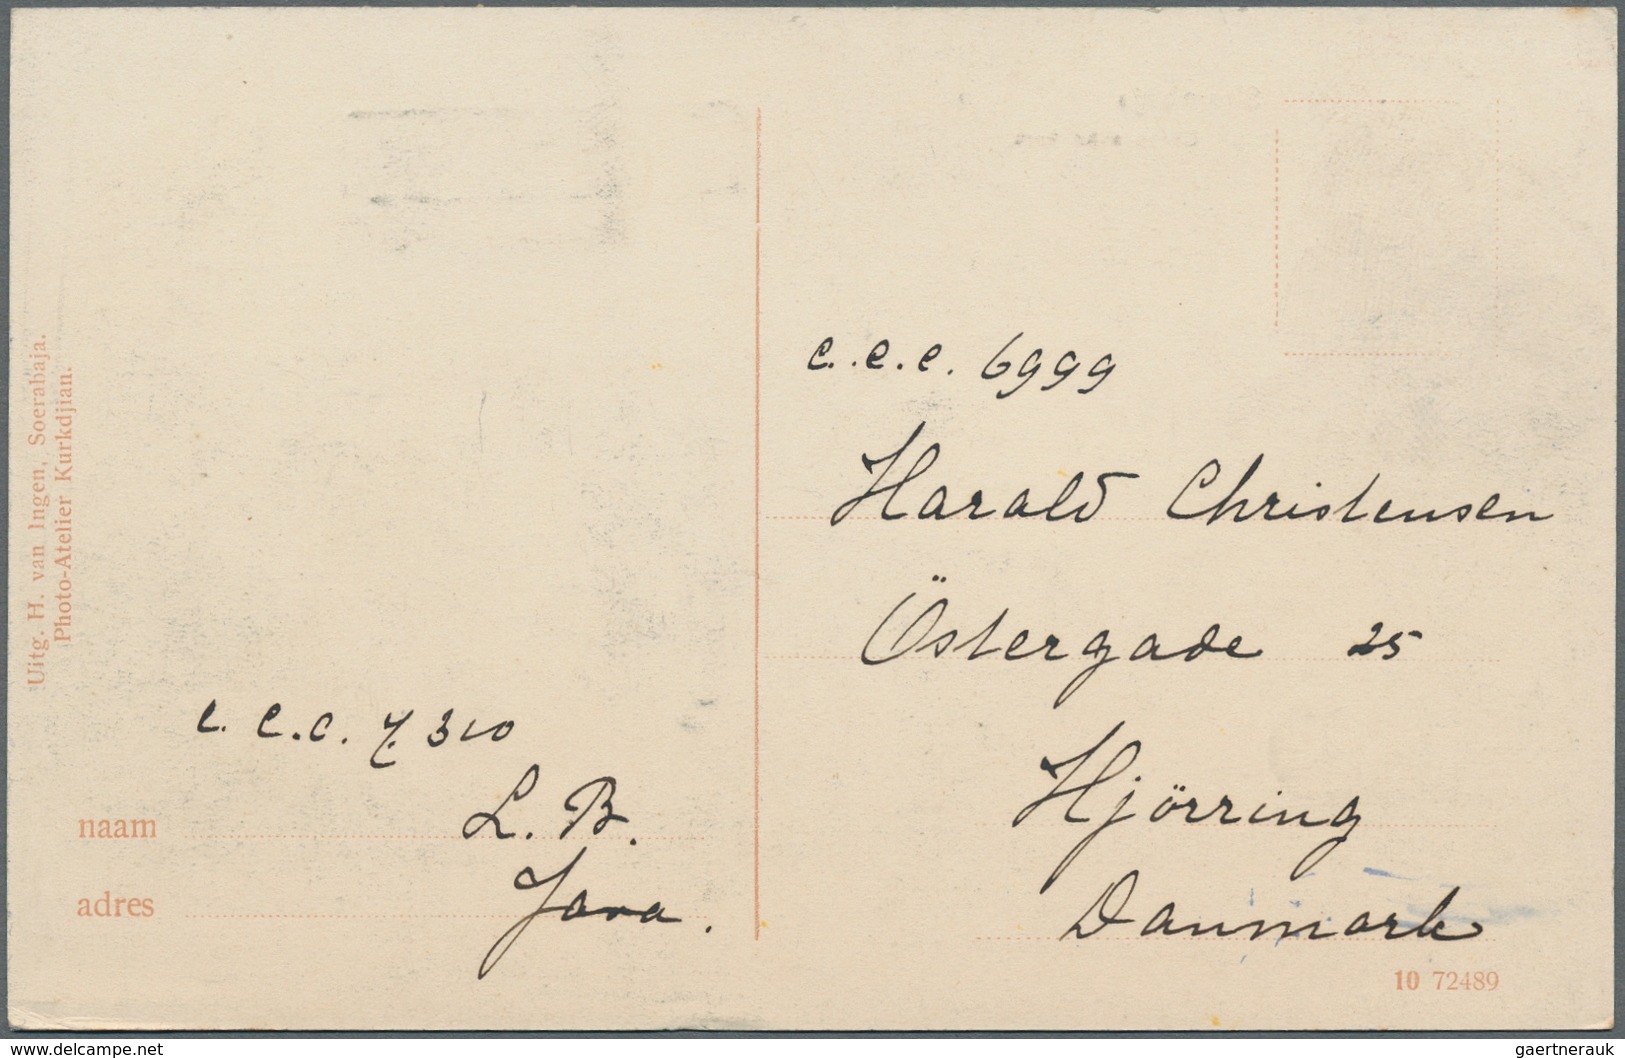 Uitg. H. van Ingen, Soerabaja.
Photo-Atelier Kurkdjian.
c.c.c. 7310
naam L. B.
adres Java.
c.c.c. 6999
Harald Christensen
Östergade 25
Hjörring
Danmark
10 72489
www.delcampe.net
gaertnerauk